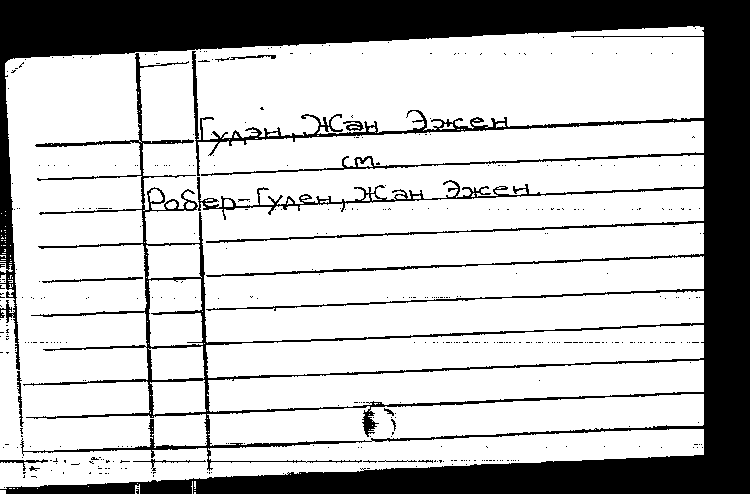 Гудэн, Жан Эжен
см.
Робер-Гуден, Жан Эжен.